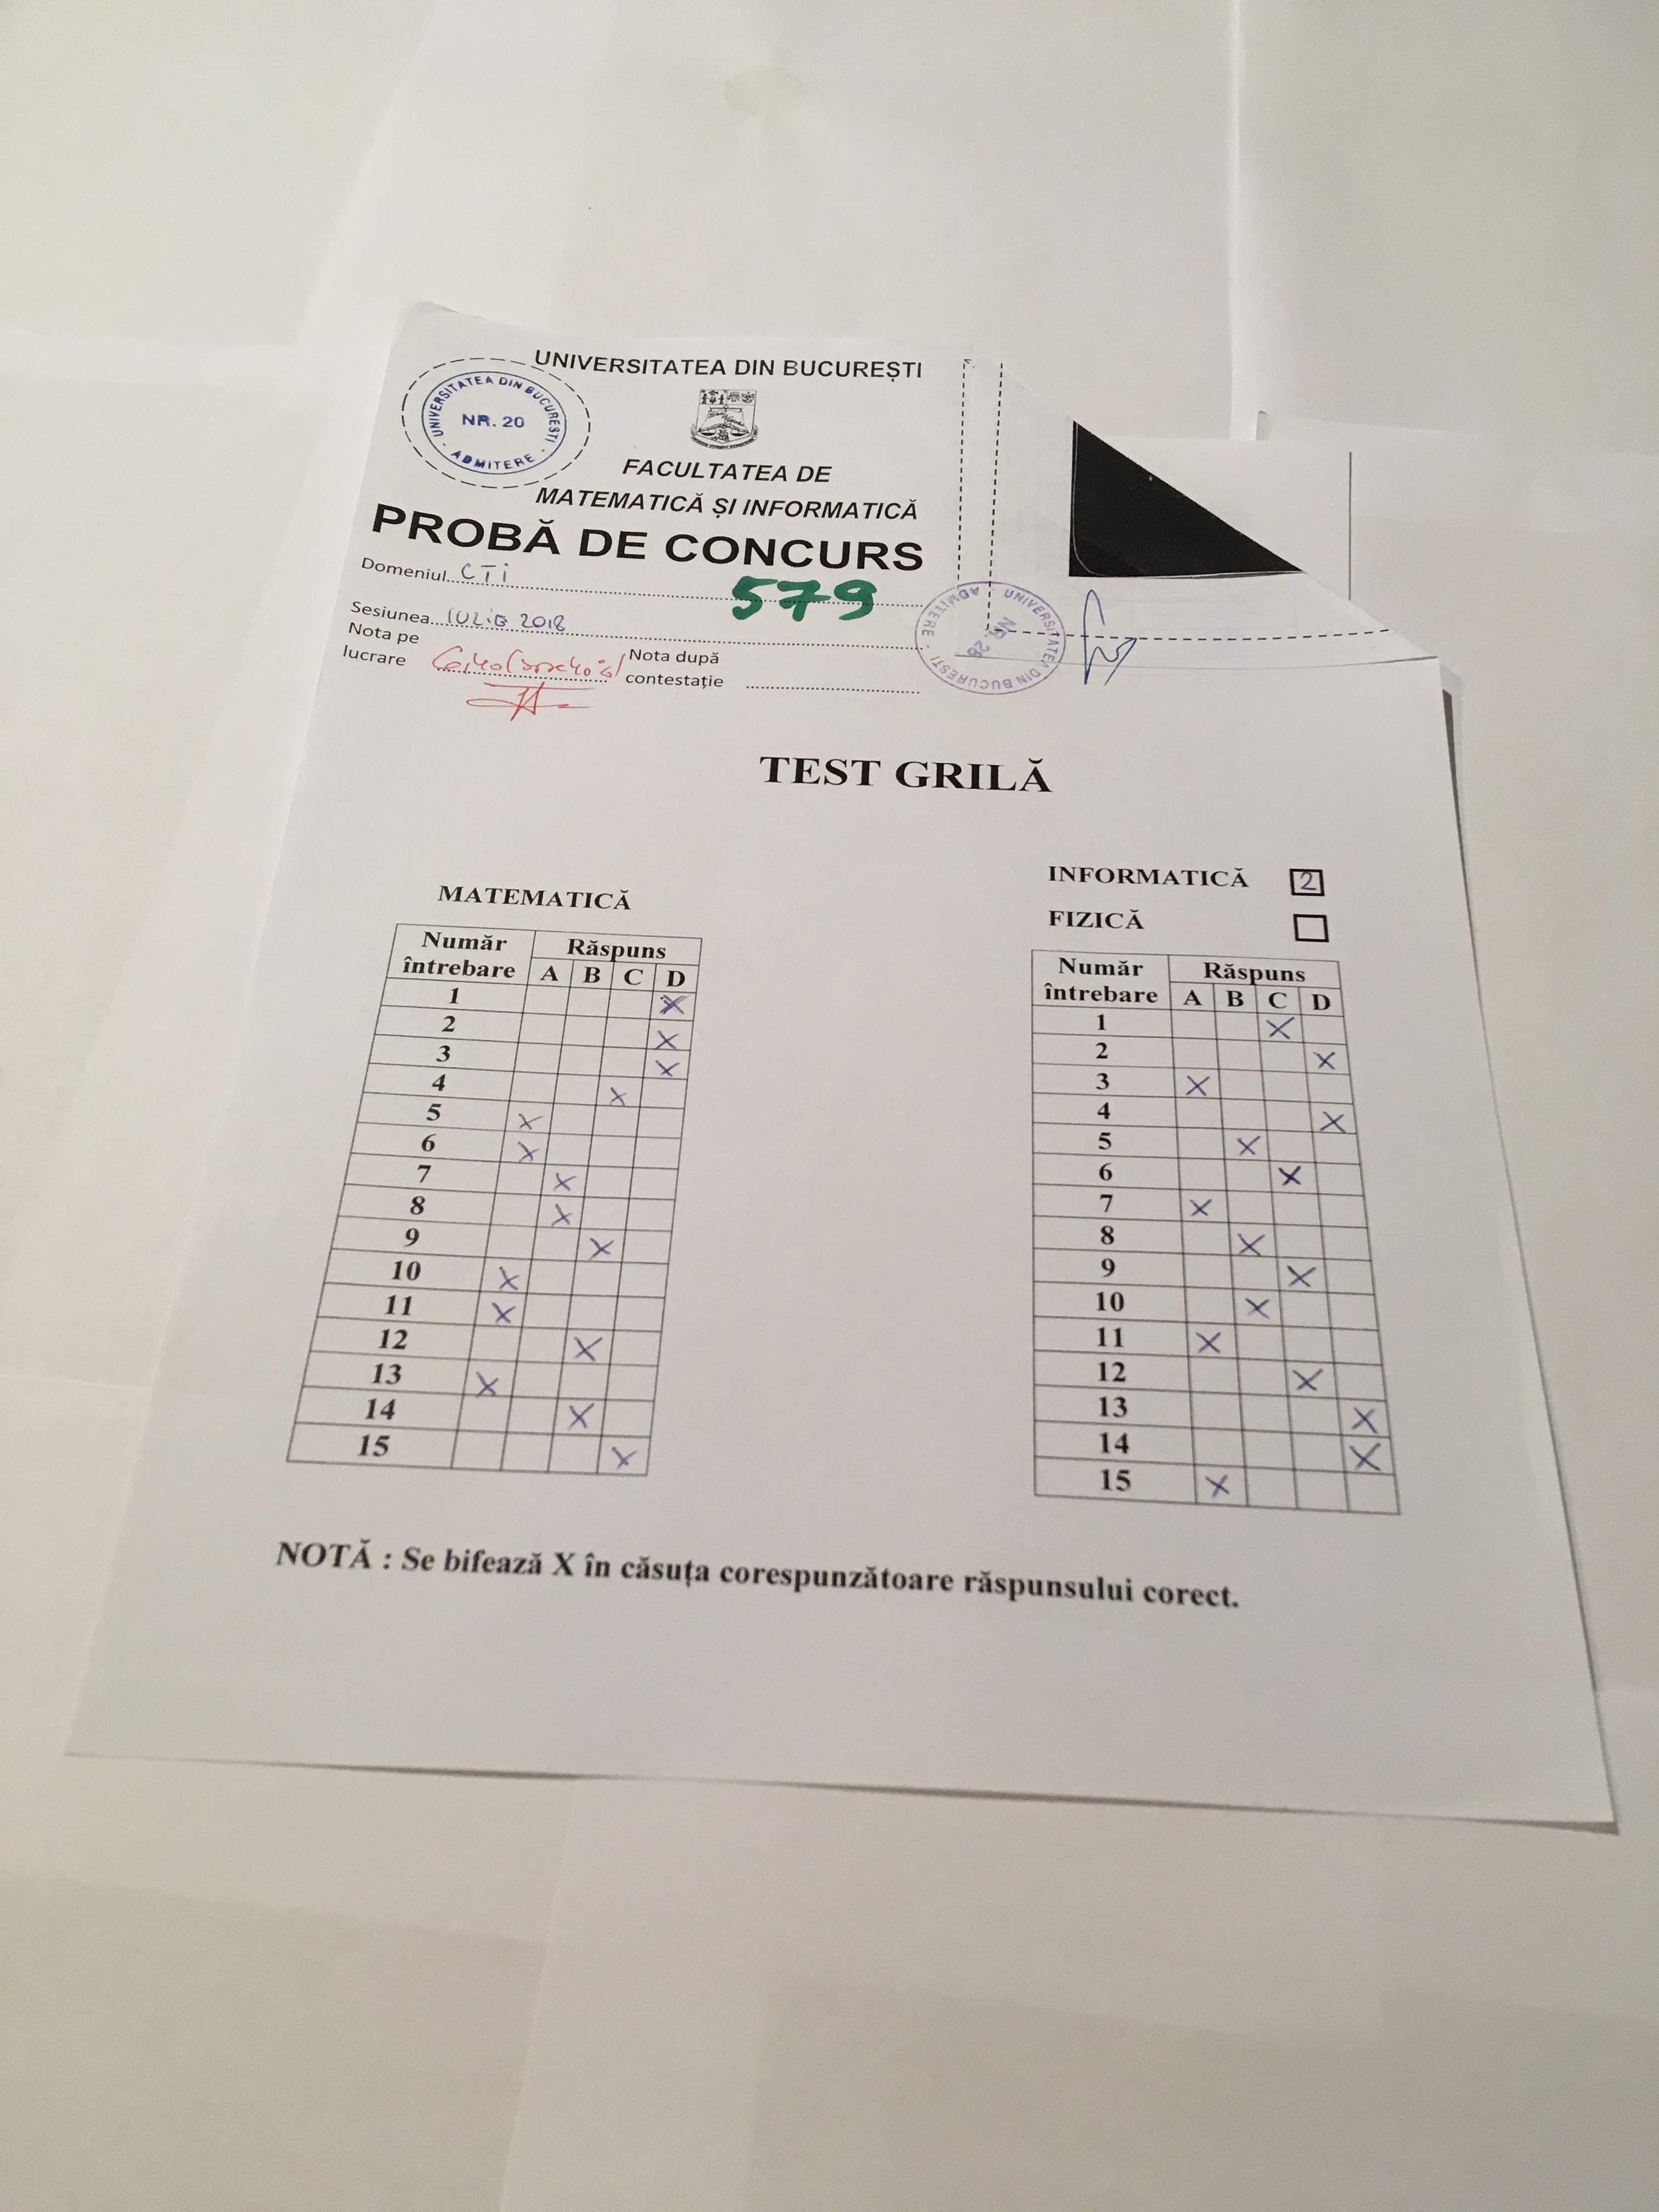 UNIVERSITATEA DIN BUCUREȘTI
UNIVERSITATEA DIN BUCUREȘTI
NR. 20
ADMITERE
FACULTATEA DE
MATEMATICĂ ȘI INFORMATICĂ
PROBĂ DE CONCURS
Domeniul CTi
579
Sesiunea IULIE 2018
Nota pe
lucrare
Nota după
contestație
UNIVERSITATEA DIN BUCUREȘTI
NR. 28
ADMITERE
TEST GRILĂ
MATEMATICĂ
Număr întrebare Răspuns
A B C D
1 X
2 X
3 X
4 X
5 X
6 X
7 X
8 X
9 X
10 X
11 X
12 X
13 X
14 X
15 X
INFORMATICĂ 2
FIZICĂ
Număr întrebare Răspuns
A B C D
1 X
2 X
3 X
4 X
5 X
6 X
7 X
8 X
9 X
10 X
11 X
12 X
13 X
14 X
15 X
NOTĂ : Se bifează X în căsuța corespunzătoare răspunsului corect.